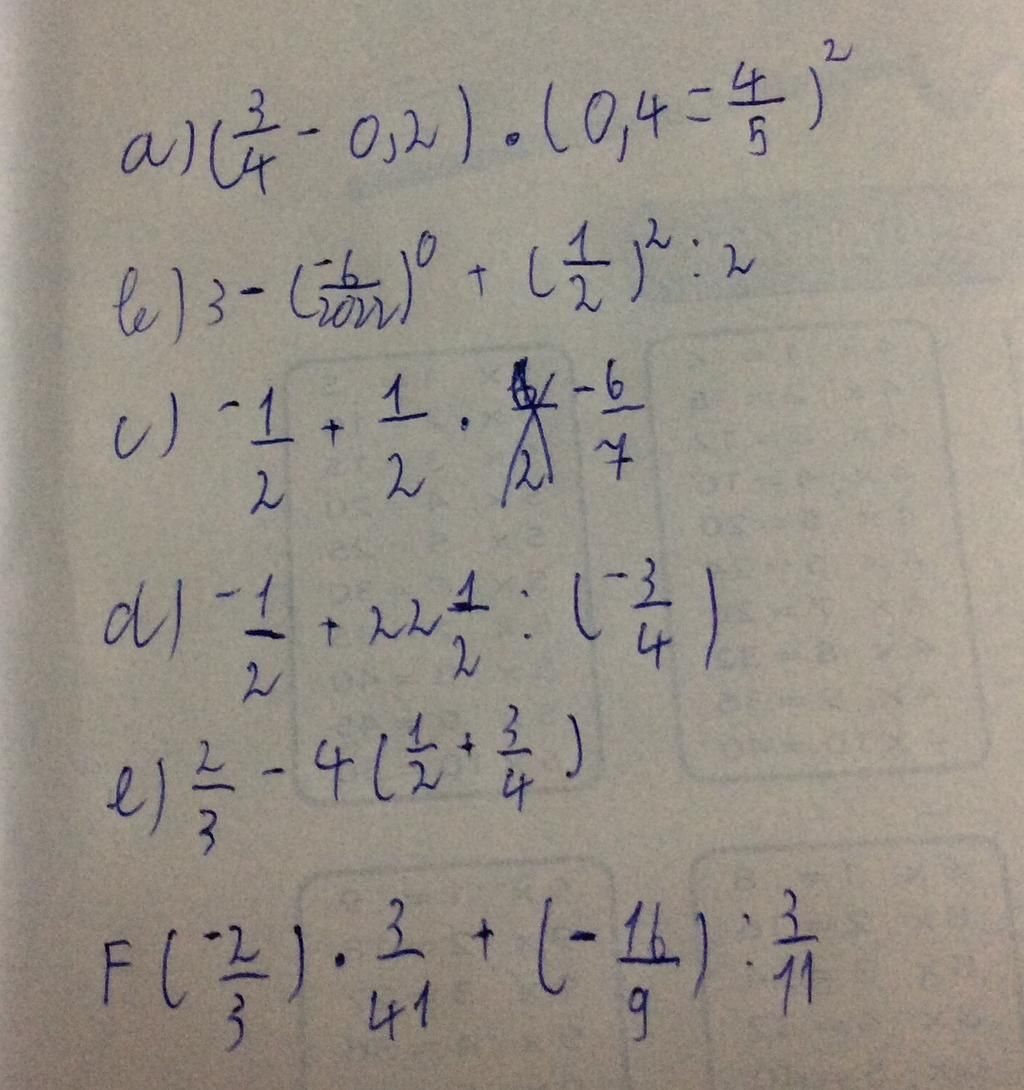 a) (3/4 - 0,2) . (0,4 = 4/5)²
b) 3 - (-6/2022)⁰ + (1/2)² : 2
c) -1/2 + 1/2 . -6/7
d) -1/2 + 22 1/2 : (-3/4)
e) 2/3 - 4 (1/2 + 3/4)
F (-2/3) . 3/41 + (- 16/9) : 3/11